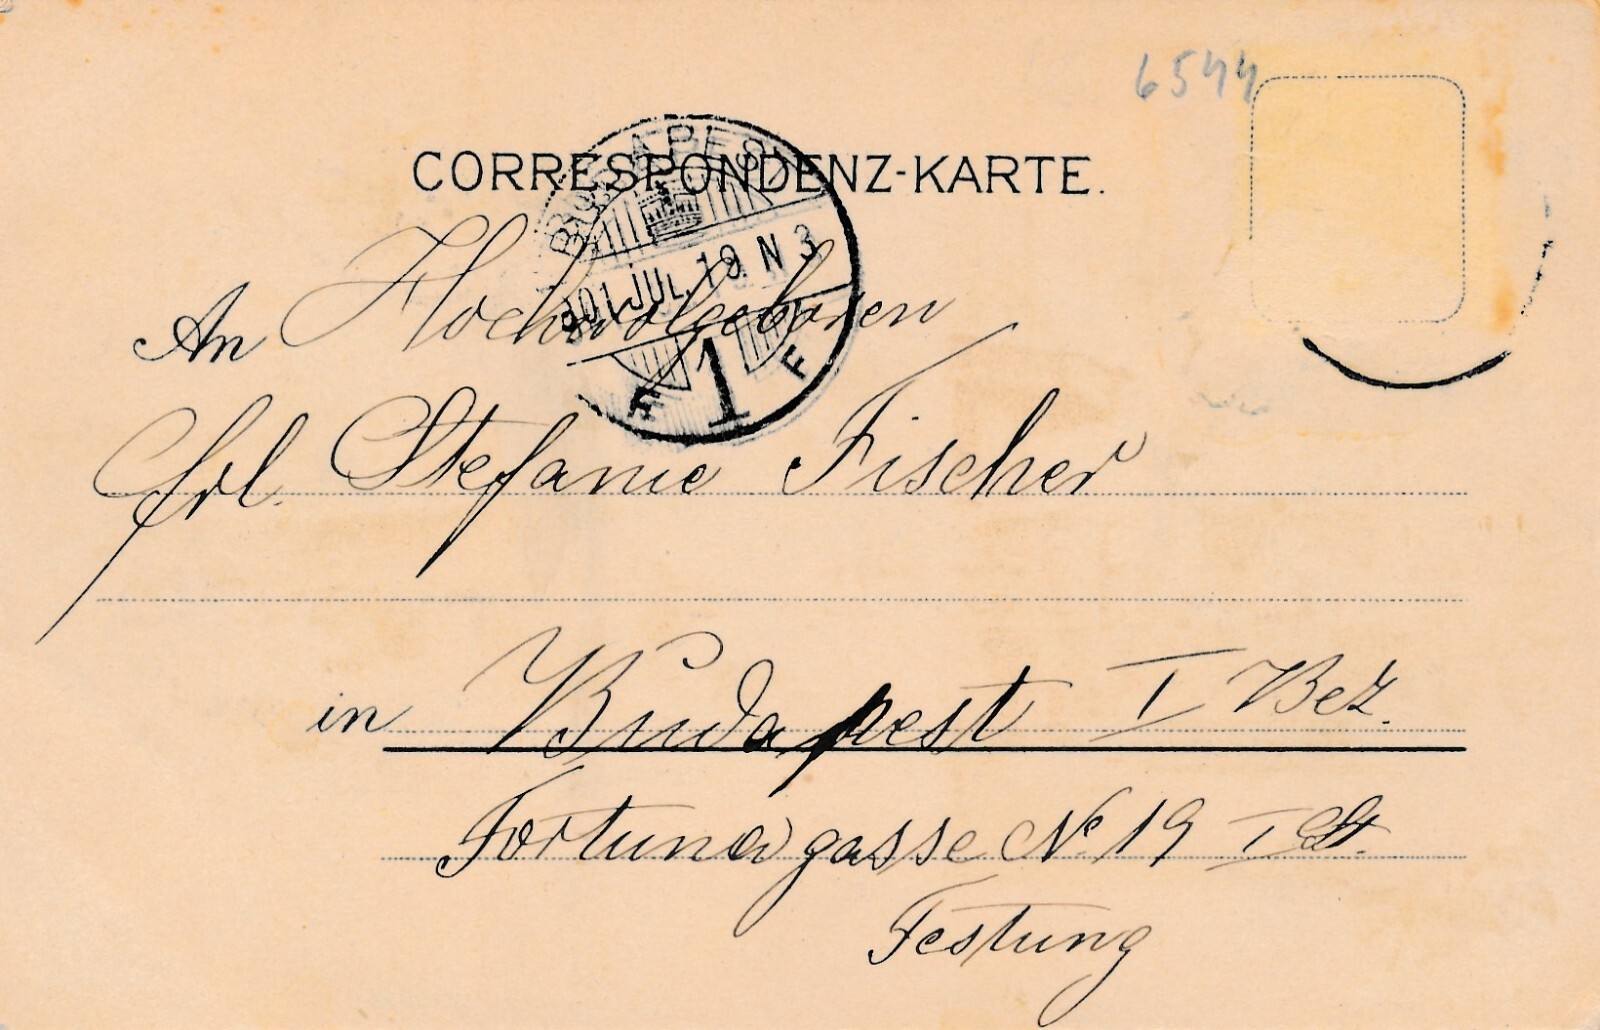 6544
CORRESPONDENZ-KARTE.
BUDAPEST
901 JUL. 19. N 3
F 1 F
An Hochwolgeboren
Frl. Stefanie Fischer
in Budapest I Bez.
Fortunagasse No. 19 I St.
Festung